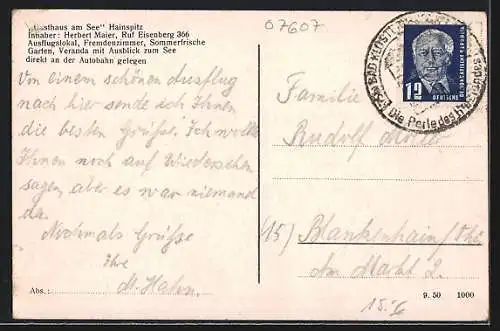 "Gasthaus am See" Hainspitz
Inhaber: Herbert Maier, Ruf Eisenberg 366
Ausflugslokal, Fremdenzimmer, Sommerfrische
Garten, Veranda mit Ausblick zum See
direkt an der Autobahn gelegen
07607
Von einem schönen Ausflug
nach hier sende ich Ihnen
die besten Grüße. Ich wollte
Ihnen noch auf Wiedersehen
sagen, aber es war niemand
da.
Nochmals Grüsse
Ihre
M. Hahn.
Abs.:
BAD KLOSTERLAUSNITZ
Die Perle des Holzlandes
12
DEUTSCHE
Familie
Rudolf
(15) Blankenhain/Thü
Am Markt 2.
9. 50 1000